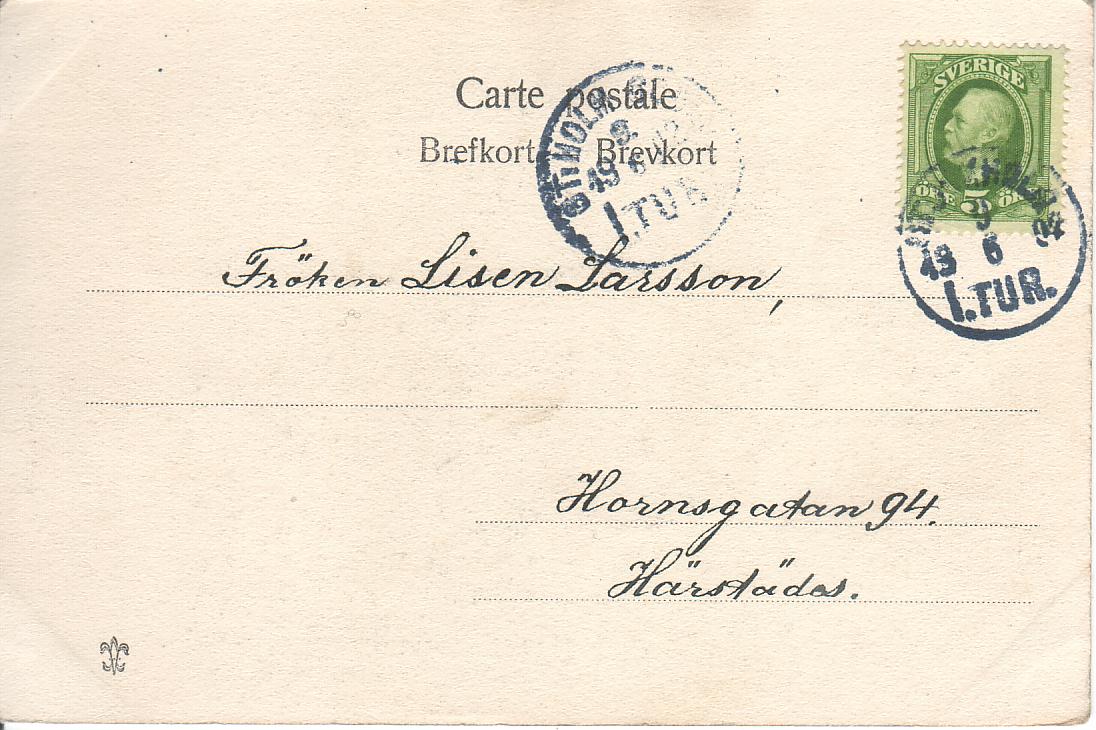 Carte postale
Brefkort Brevkort
SVERIGE
ÖRE 5 ÖRE
STHOLM
9
19 6
1.TUR
9
19 6 04
1.TUR.
Fröken Lisen Larsson,
Hornsgatan 94.
Härstädes.